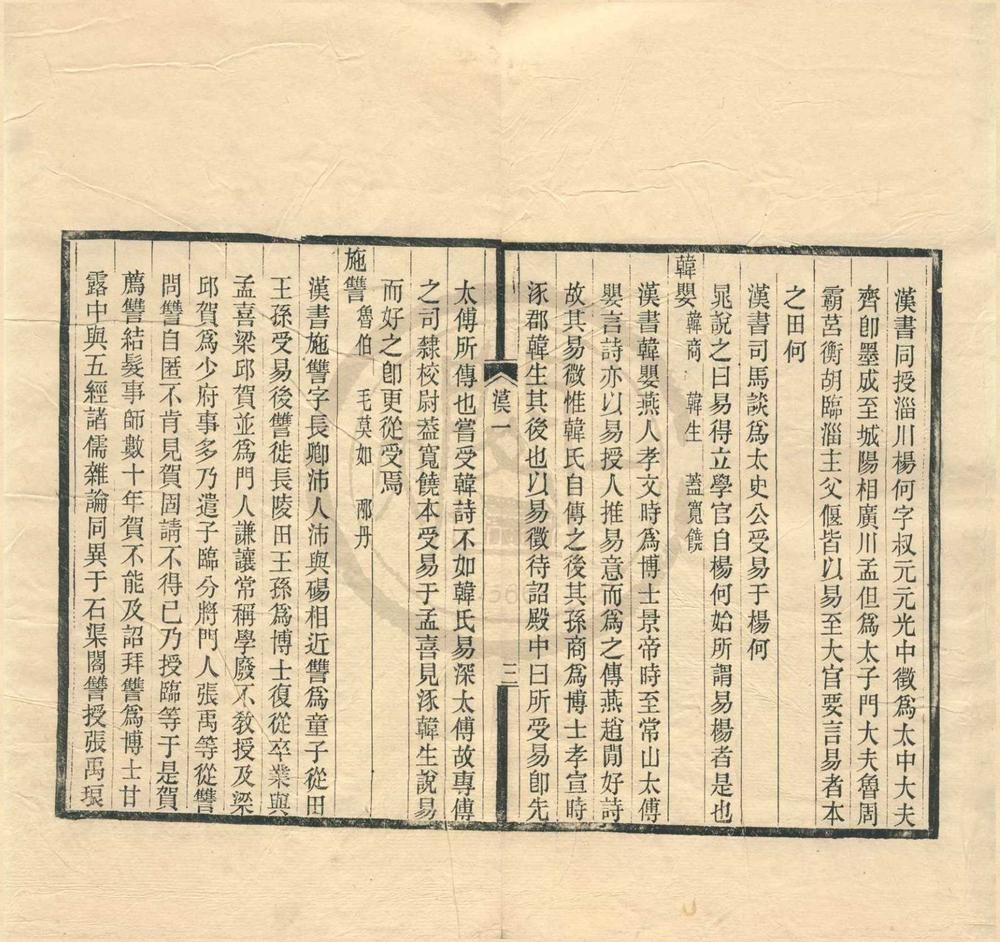 漢書同授淄川楊何字叔元元光中徵爲太中大夫
齊卽墨成至城陽相廣川孟但爲太子門大夫魯周
霸莒衡胡臨淄主父偃皆以易至大官要言易者本
之田何
漢書司馬談爲太史公受易于楊何
晁說之曰易得立學官自楊何始所謂易楊者是也
韓嬰 韓商 韓生 蓋寬饒
漢書韓嬰燕人孝文時爲博士景帝時至常山太傅
嬰言詩亦以易授人推易意而爲之傳燕趙閒好詩
故其易微惟韓氏自傳之後其孫商爲博士孝宣時
涿郡韓生其後也以易徵待詔殿中曰所受易卽先
漢一 三
太傅所傳也嘗受韓詩不如韓氏易深太傅故專傳
之司隸校尉蓋寬饒本受易于孟喜見涿韓生說易
而好之卽更從受焉
施讐 魯伯 毛莫如 邴丹
漢書施讐字長卿沛人沛與碭相近讐爲童子從田
王孫受易後讐徙長陵田王孫爲博士復從卒業與
孟喜梁邱賀並爲門人謙讓常稱學廢不敎授及梁
邱賀爲少府事多乃遣子臨分將門人張禹等從讐
問讐自匿不肯見賀固請不得已乃授臨等于是賀
薦讐結髮事師數十年賀不能及詔拜讐爲博士甘
露中與五經諸儒雜論同異于石渠閣讐授張禹琅